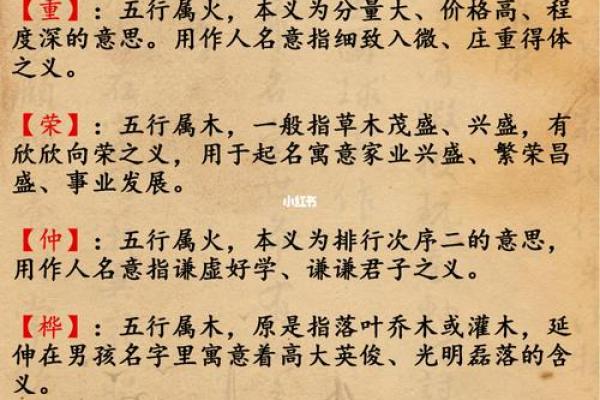 【重】：五行属火，本义为分量大、价格高、程
度深的意思。用作人名意指细致入微、庄重得体
之义。
【荣】：五行属木，一般指草木茂盛、兴盛，有
欣欣向荣之义，用于起名寓意家业兴盛、繁荣昌
盛、事业发展。
小红书
【仲】：五行属火，本义为排行次序二的意思，
用作人名意指谦虚好学、谦谦君子之义。
【桦】：五行属木，原是指落叶乔木或灌木，延
伸在男孩名字里寓意着高大英俊、光明磊落的含
义。